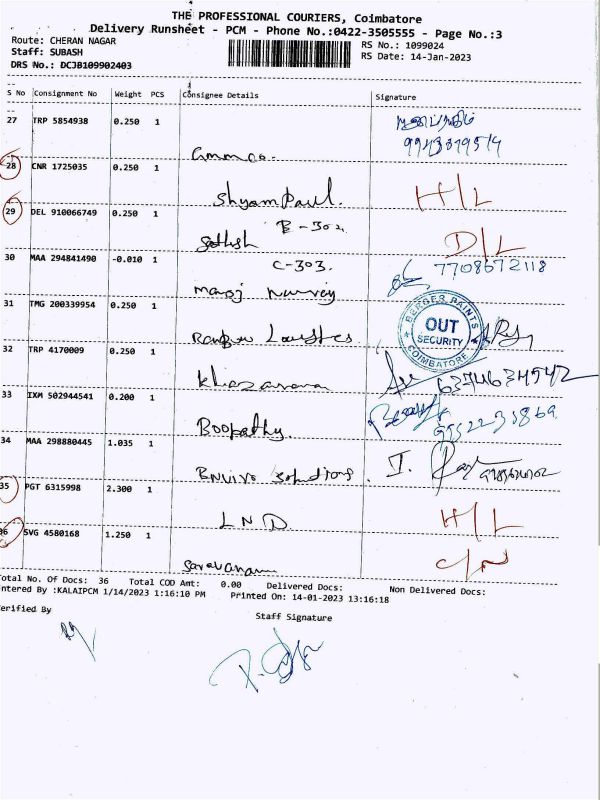 THE PROFESSIONAL COURIERS, Coimbatore
Delivery Runsheet - PCM - Phone No.:0422-3505555 - Page No.:3
Route: CHERAN NAGAR RS No.: 1099024
Staff: SUBASH RS Date: 14-Jan-2023
DRS No.: DCJB109902403
S No Consignment No Weight PCS Consignee Details Signature
27 TRP 5854938 0.250 1
28 CNR 1725035 0.250 1
Shyam Paul. H/L
29 DEL 910066749 0.250 1
Sathish B-302 D/L
30 MAA 294841490 -0.010 1 C-303. 7708672118
31 TMG 200339954 0.250 1
BERGER PAINTS
OUT
SECURITY
COIMBATORE
32 TRP 4170009 0.250 1
Khazanana
33 IXM 502944541 0.200 1
Boopathy
34 MAA 298880445 1.035 1
Solutions
35 PGT 6315998 2.300 1
LND H/L
36 SVG 4580168 1.250 1
Saravanan
Total No. Of Docs: 36 Total COD Amt: 0.00 Delivered Docs: Non Delivered Docs:
ntered By :KALAIPCM 1/14/2023 1:16:10 PM Printed On: 14-01-2023 13:16:18
erified By
Staff Signature